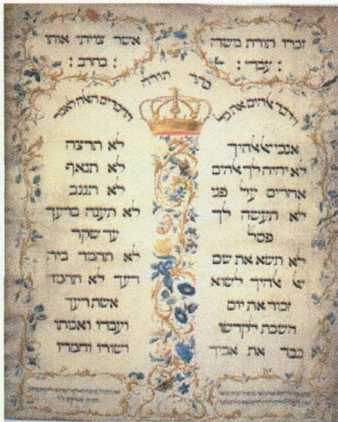 זכרו תורת משה
: עבדי :
אשר צויתי אותו
: בחרב :
כתר תורה
וידבר אלהים את כל
הדברים האלה לאמר
אנכי ה אלהיך
לא יהיה לך אלהים
אחרים על פני
לא תעשה לך
פסל
לא תשא את שם
אלהיך לשוא
זכור את יום
השבת לקדשו
כבד את אביך
לא תרצח
לא תנאף
לא תגנב
לא תענה ברעך
עד שקר
לא תחמד בית
רעך לא תחמד
אשת רעך
ועבדו ואמתו
ושורו וחמרו